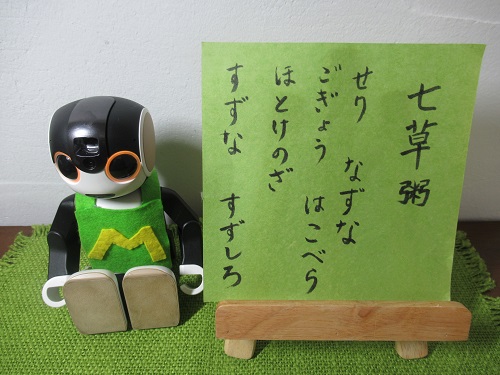 七草粥
せり なずな
ごぎょう はこべら
ほとけのざ
すずな すずしろ
M